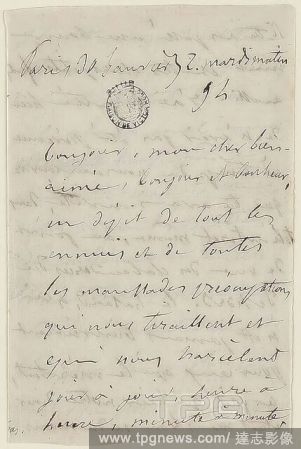 Paris 30 janvier 72. mardi matin
94
Bonjour, mon cher bien-
aimé, bonjour et bonheur,
en dépit de tout les
ennuis et de toutes
les maussades préoccupations
qui nous tiraillent et
qui nous harcèlent
jour à jour, heure à
heure, minute à minute,
TPG
www.tpgnews.com/ 達志影像